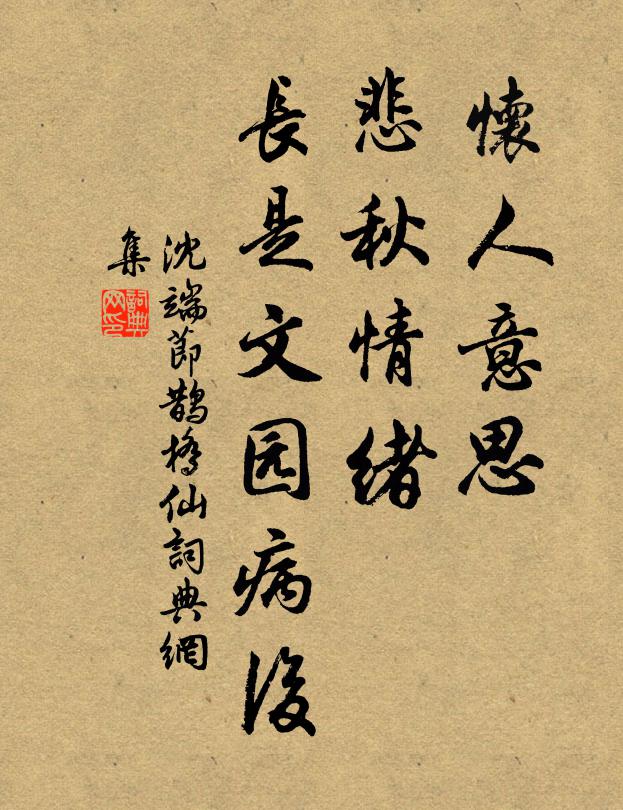 懷人意思
悲秋情緒
長是文园病後
沈端節鵲橋仙詞典網
集
詞典
网印